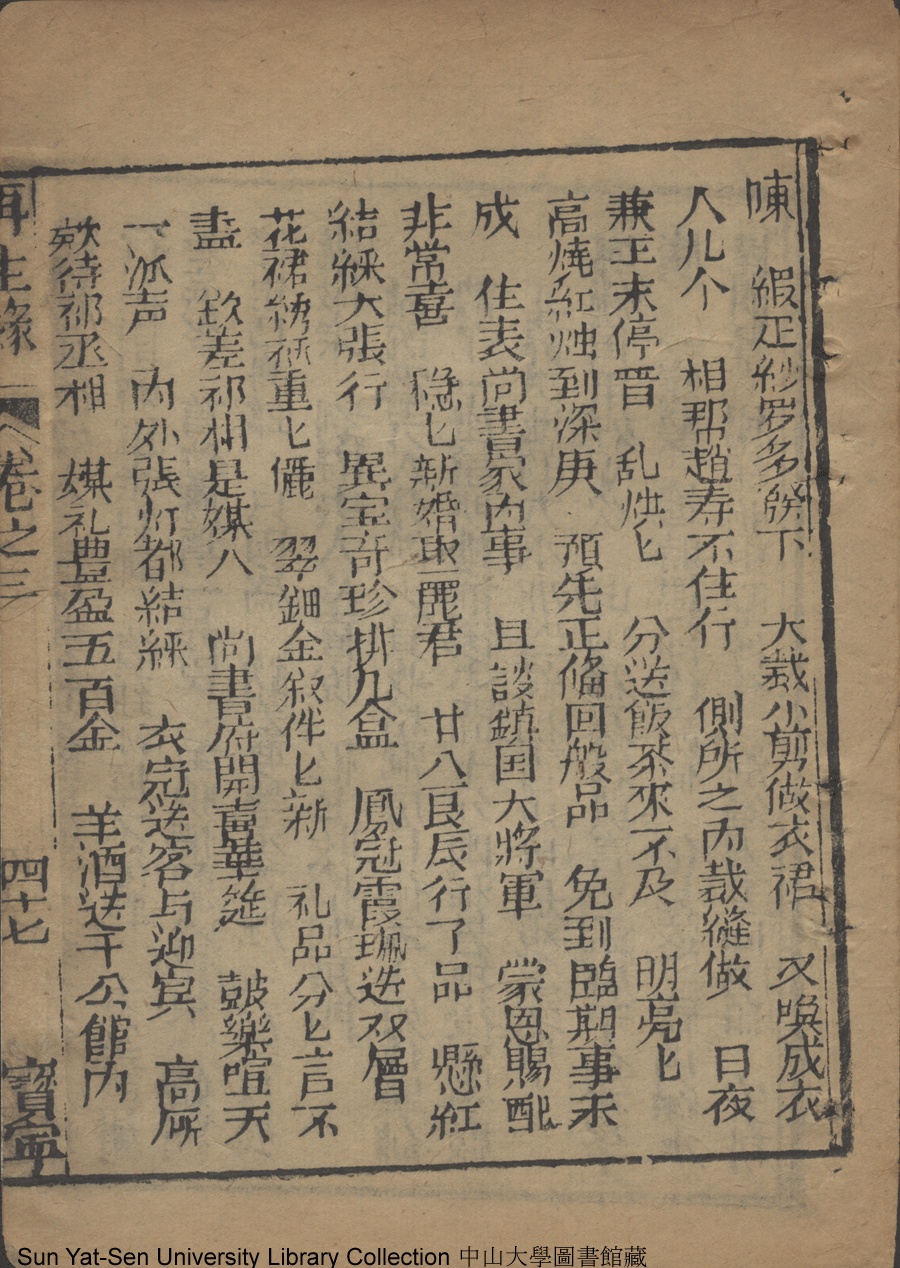 陳 緞疋紗罗多發下 大裁小剪做衣裙 又喚成衣
人几个 相帮趙寿不住行 側所之内裁縫做 日夜
兼工未停晋 乱烘匕 分送飯茶來不及 明亮匕
高燒紅烛到深庚 預先正偹回般品 免到臨期事未
成 住表尚書家内事 且談鎮国大將軍 蒙恩賜配
非常喜 穏匕新婚取麗君 廿八良辰行了品 懸紅
結綵大張行 異宝奇珍排九盒 鳳冠霞珮迭双層
花裙綉袄重匕儷 翠鈿金叙件匕新 礼品分匕言不
盡 欽差祁相是媒人 尚書府開喜華筵 鼓樂喧天
一派声 内外張灯都結綵 衣冠送客与迎宾 高所
欵待祁丞相 媒礼豊盈五百金 羊酒送于公館内
再生緣 卷之三 四十七 寶寧
Sun Yat-Sen University Library Collection 中山大學圖書館藏